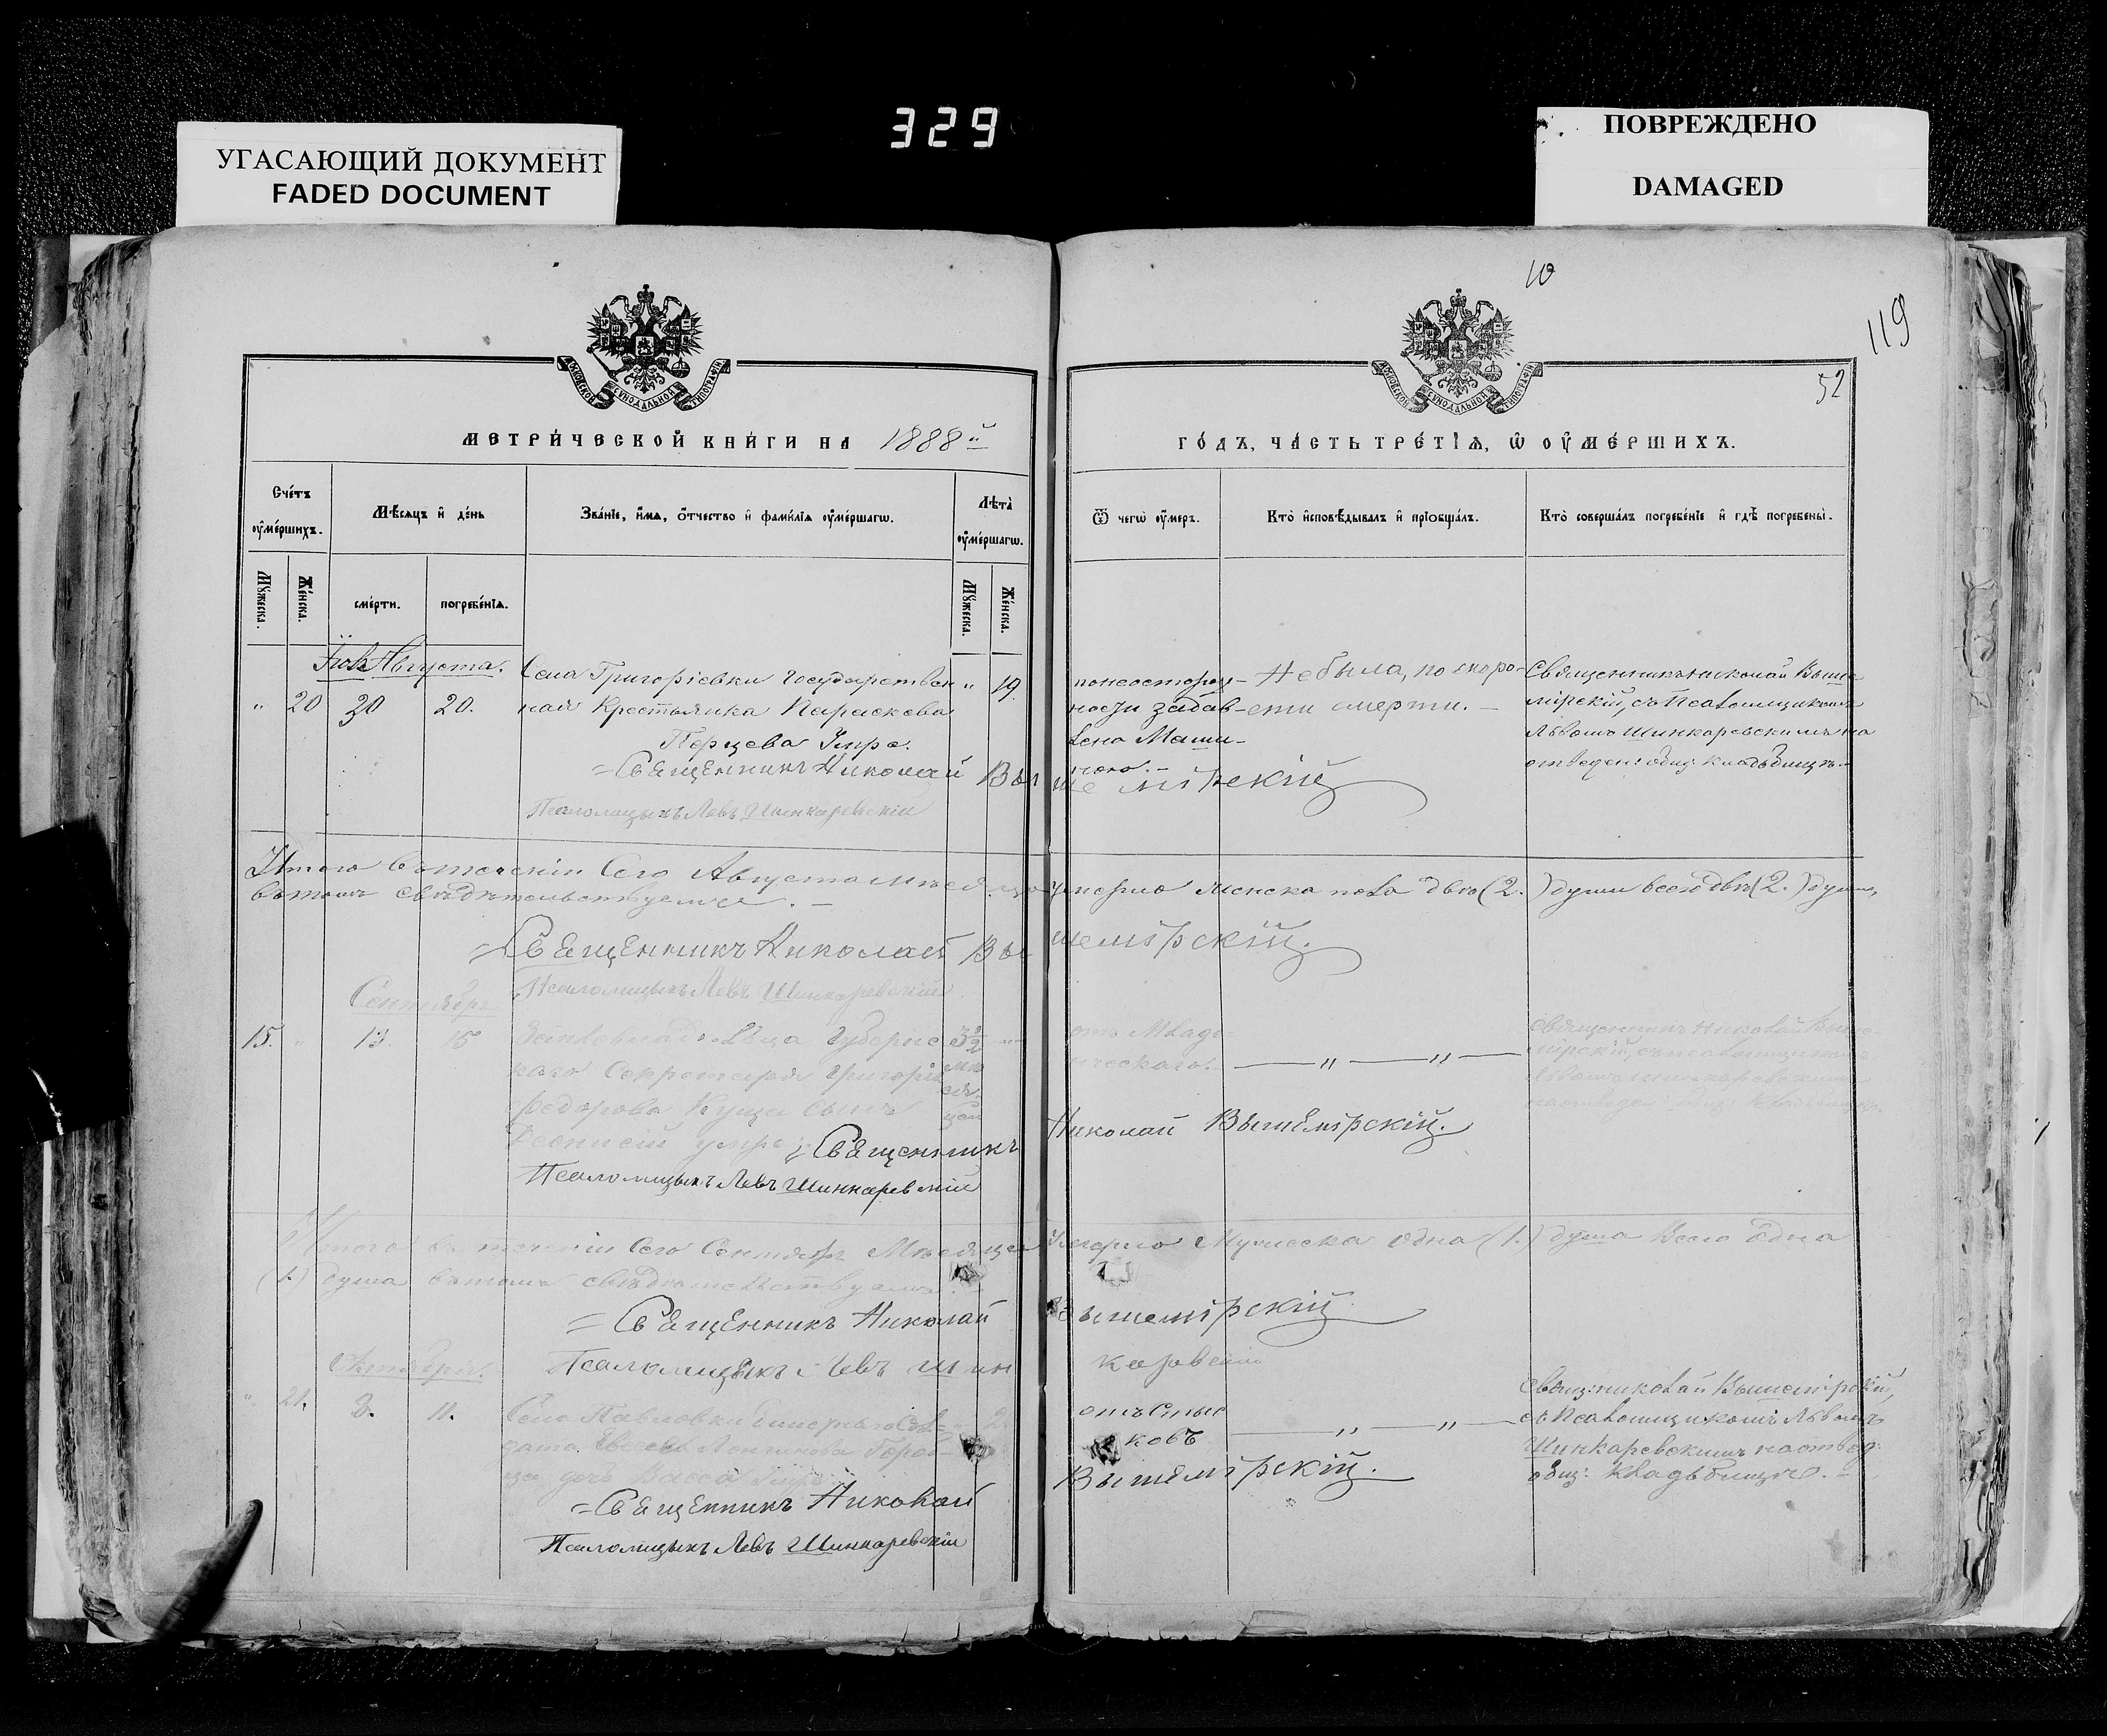 УГАСАЮЩИЙ ДОКУМЕНТ
FADED DOCUMENT
329
ПОВРЕЖДЕНО
DAMAGED
10
119
52
МОСКОВСКОЙ СУНОДАЛЬНОЙ ТИПОГРАФІИ
МОСКОВСКОЙ СУНОДАЛЬНОЙ ТИПОГРАФІИ
МЕТРИ́ЧЕСКОЙ КНИ́ГИ НА 1888й
ГО́ДЪ, ЧА́СТЬ ТРЕ́ТІѦ, Ѡ ОУ҆МЕ́РШИХЪ.
Сче́тъ оу҆ме́ршихъ.
Мѣ́сѧцъ и҆ де́нь
Зва́нїе, и҆́мѧ, ѻ҆́тчество и҆ фами́лїѧ оу҆ме́ршагѡ.
Лѣта̀ оу҆ме́ршагѡ.
Ѿ чегѡ̀ оу҆́меръ.
Кто̀ и҆сповѣ́дывалъ и҆ прїобща́лъ.
Кто̀ соверша́лъ погребе́нїе и҆ гдѣ̀ погребены̀.
Мꙋ́жеска.
Же́нска.
сме́рти.
погребе́нїѧ.
Мꙋ́жеска.
Же́нска.
Августа.
" 20 30 20.
Села Григоріевки Государствен
ная Крестьянка Параскева
Перцева Умре.
" 19.
по неосторож-
ности задав-
лена Маши-
ною.-
Не была, по скоро-
сти смерти. -
Священникъ Николай Выше
мірскій, съ Псаломщикомъ
Львомъ Шинкаревскимъ на
отведен: общ: кладбищѣ.-
=Священникъ Николай Вышемірскій
Псаломщикъ Левъ Шинкаревскій
Итого въ теченіи Сего Августа мѣсяца умерло женска пола двѣ (2.) души всего двѣ (2.) души,
въ томъ свѣдѣтельствуемъ. -
=Священникъ Николай Вышемірскій.
Псаломщикъ Левъ Шинкаревскій
Сентябрь
15. " 13. 15
Губернс
каго Секретаря Григорія
Федорова Куща сынъ
умре
3½
мѣ
ся
цей
отъ Младе
нческаго.
— " — " —
Священникъ Николай Выше
мірскій, съ псаломщикомъ
Львомъ Шинкаревскимъ
на отведен: общ: кладбищѣ.
Священникъ Николай Вышемірскій.
Псаломщикъ Левъ Шинкаревскій
Итого въ теченіи Сего Сентябрь Мѣсяца Умерло Мужеска одна (1.) душа Всего одна
(1.) душа въ томъ свѣдѣтельствуемъ.
=Священникъ Николай Вышемірскій
Псаломщикъ Левъ Шинкаревскій
Октября.
" 21. 8. 11.
Села Павловки
дочь Васса Умре
отъ Спыс
ковъ
— " — " —
Свящ: Николай Вышемірскій,
съ Псаломщикомъ Львомъ
Шинкаревскимъ на отвед:
общ: кладьбищѣ. -
=Священникъ Николай Вышемірскій.
Псаломщикъ Левъ Шинкаревскій